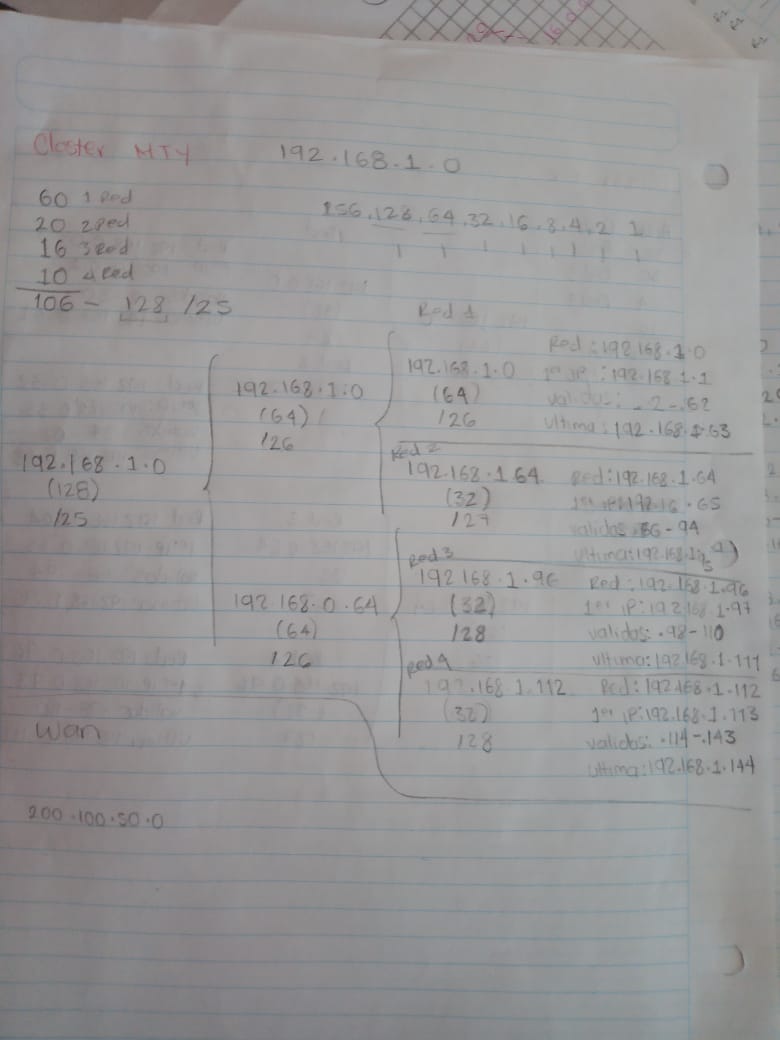 Closter MTY
192.168.1.0
60 1 Red
20 2 Red
16 3 Red
10 4 Red
106 - 128 /25
256, 128, 64, 32, 16, 8, 4, 2 1
192.168.1.0
(128)
/25
192.168.1.0
(64)
/26
192.168.0.64
(64)
/26
Red 1
192.168.1.0
(64)
/26
Red: 192.168.1.0
1er IP.: 192.168.1.1
validas: .2-.62
ultima: 192.168.1.63
Red 2
192.168.1.64
(32)
/27
Red: 192.168.1.64
.65
validas .66-94
ultima: 192.168.1.
Red 3
192.168.1.96
(32)
/28
Red: 192.168.1.96
1er IP: 192.168.1.97
validas: .98-110
ultima: 192.168.1.111
Red 4
192.168.1.112
(32)
/28
Red: 192.168.1.112
1er IP: 192.168.1.113
validas: .114-.143
ultima: 192.168.1.144
Wan
200.100.50.0